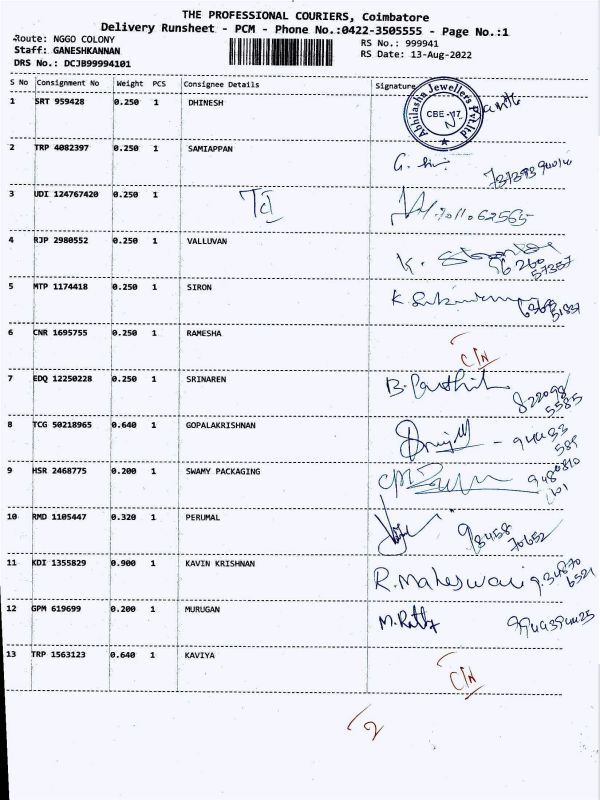 THE PROFESSIONAL COURIERS, Coimbatore
Delivery Runsheet - PCM - Phone No.:0422-3505555 - Page No.:1
Route: NGGO COLONY RS No.: 999941
Staff: GANESHKANNAN RS Date: 13-Aug-2022
DRS No.: DCJB99994101
S No Consignment No Weight PCS Consignee Details Signature
Abhilasha Jewellers Pvt.Ltd
CBE -
1 SRT 959428 0.250 1 DHINESH
2 TRP 4082397 0.250 1 SAMIAPPAN G.
3 UDI 124767420 0.250 1
4 RJP 2980552 0.250 1 VALLUVAN K.
96260
57357
5 MTP 1174418 0.250 1 SIRON K
6 CNR 1695755 0.250 1 RAMESHA
C/N
7 EDQ 12250228 0.250 1 SRINAREN B.
822098
5585
8 TCG 50218965 0.640 1 GOPALAKRISHNAN
9 HSR 2468775 0.200 1 SWAMY PACKAGING
10 RMD 1105447 0.320 1 PERUMAL
98458
70652
11 KDI 1355829 0.900 1 KAVIN KRISHNAN
R. Maheswari
12 GPM 619699 0.200 1 MURUGAN M.
13 TRP 1563123 0.640 1 KAVIYA
C/N
2